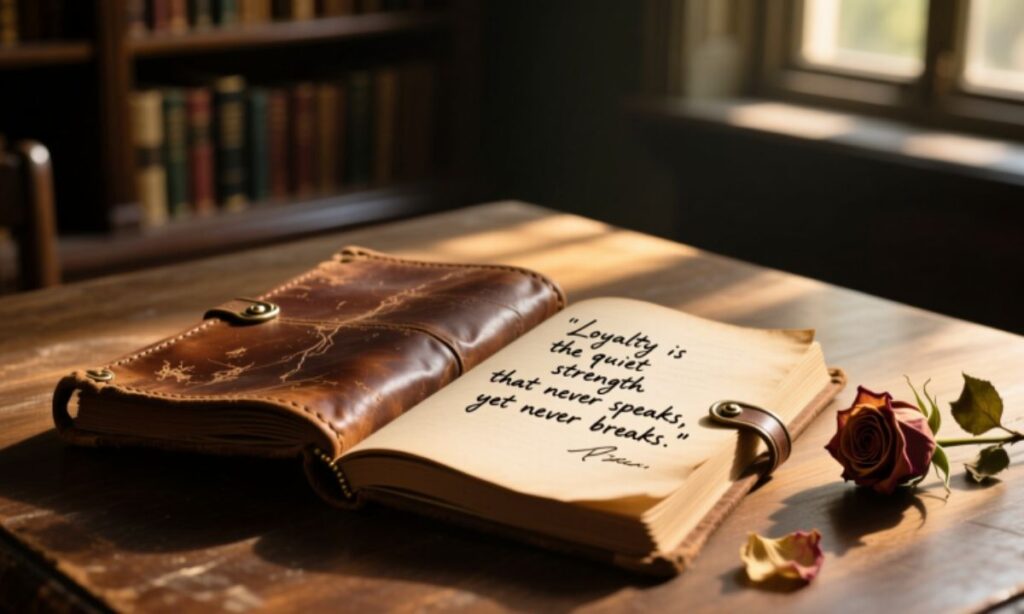 "Loyalty is
the quiet
strength
that never speaks,
yet never breaks."